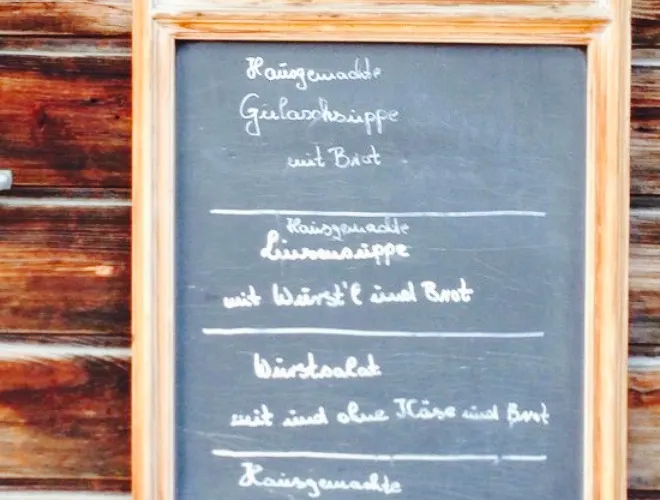 Hausgemachte
Gulaschsuppe
mit Brot
Hausgemachte
Linsensuppe
mit Würst'l und Brot
Wurstsalat
mit und ohne Käse und Brot
Hausgemachte